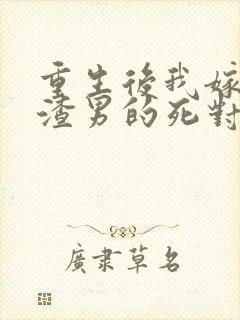 重生後我嫁
渣男的死對
廣隶草名